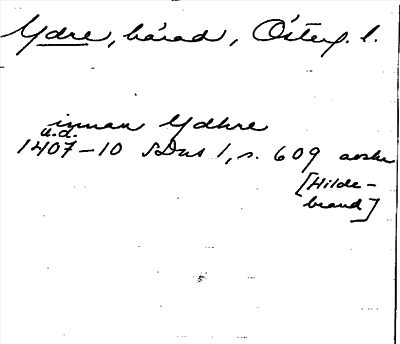 Ydre, härad, Österg. l.
innan Ydhre
u.d.
1407–10 SDns 1, s. 609 avskr
[Hilde-
brand]